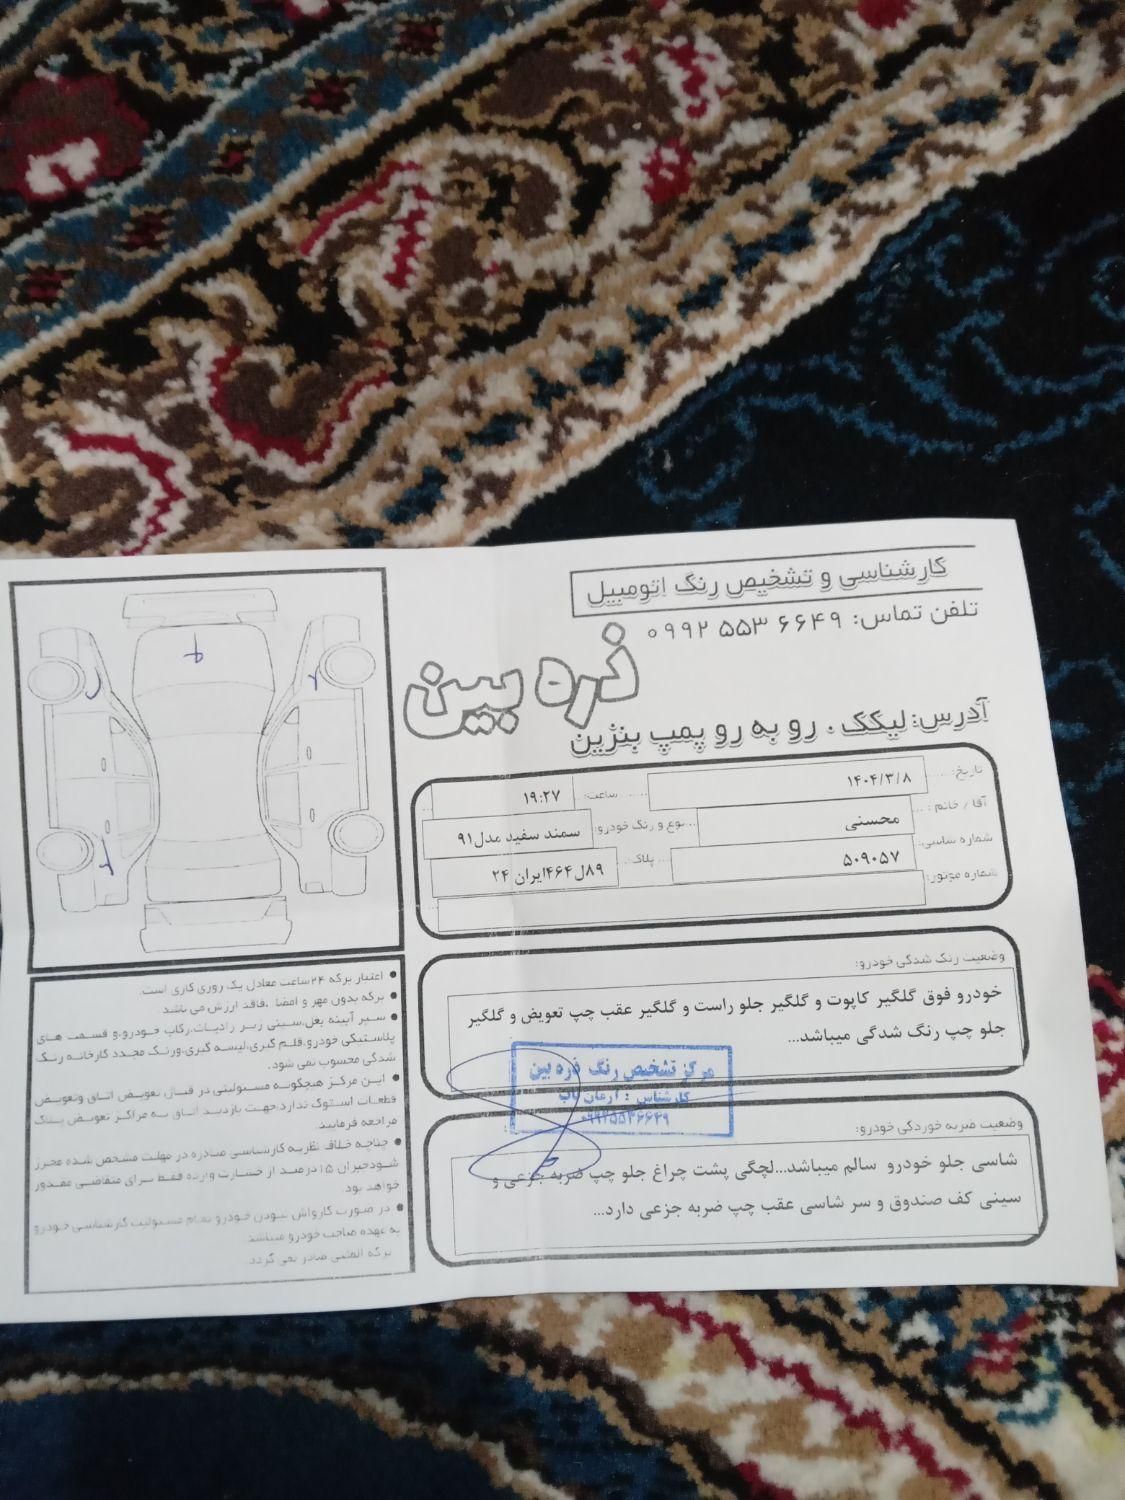 کارشناسی و تشخیص رنگ اتومبیل
تلفن تماس: ۰۹۹۲ ۵۵۳ ۶۶۴۹
ذره بین
آدرس: لیکک . رو به رو پمپ بنزین
تاریخ: ۱۴۰۴/۳/۸ ساعت: ۱۹:۲۷
آقا / خانم : محسنی نوع و رنگ خودرو: سمند سفید مدل۹۱
شماره شاسی: ۵۰۹۰۵۷ پلاک: ۸۹ل۴۶۴ایران ۲۴
شماره موتور:
وضعیت رنگ شدگی خودرو:
خودرو فوق گلگیر کاپوت و گلگیر جلو راست و گلگیر عقب چپ تعویض و گلگیر
جلو چپ رنگ شدگی میباشد...
مرکز تشخیص رنگ ذره بین
کارشناس : آرمان تاب
۰۹۹۲۵۵۳۶۶۴۹
وضعیت ضربه خوردگی خودرو:
شاسی جلو خودرو سالم میباشد...لچگی پشت چراغ جلو چپ ضربه جزعی و
سینی کف صندوق و سر شاسی عقب چپ ضربه جزعی دارد...
● اعتبار برگه ۲۴ساعت معادل یک روزی کاری است.
● برگه بدون مهر و امضا ،فاقد ارزش می باشد.
● سپر آیینه بغل،سینی زیر رادیات،رکاب خودرو،و قسمت های
پلاستیکی خودرو،قلم گیری،لیسه گیری،ورنگ مجدد کارخانه رنگ
شدگی محسوب نمی شود.
● این مرکز هیچگونه مسئولیتی در قبال تعویض اتاق وتعویض
قطعات استوک ندارد،جهت بازدید اتاق به مراکز تعویض پلاک
مراجعه فرمایید.
● چنانچه خلاف نظریه کارشناسی صادره در مهلت مشخص شده محرز
شود،جبران ۱۵درصد از خسارت وارده فقط برای متقاضی مقدور
خواهد بود.
● در صورت کارواش نبودن خودرو تمام مسئولیت کارشناسی خودرو
به عهده صاحب خودرو میباشد.
برگه المثنی صادر نمی گردد.